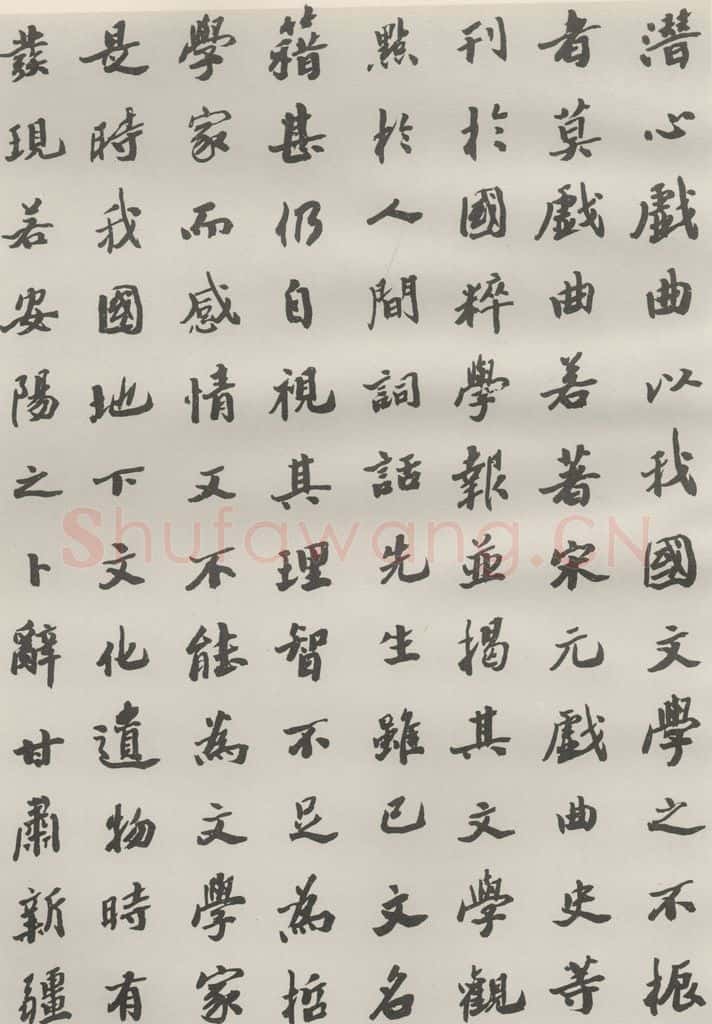 潛心戲曲以我國文學之不振
者莫戲曲若著宋元戲曲史等
刊於國粹學報並揭其文學觀
點於人間詞話先生雖已文名
籍甚仍自視其理智不足為哲
學家而感情又不能為文學家
是時我國地下文化遺物時有
發現若安陽之卜辭甘肅新疆
Shufawang.CN